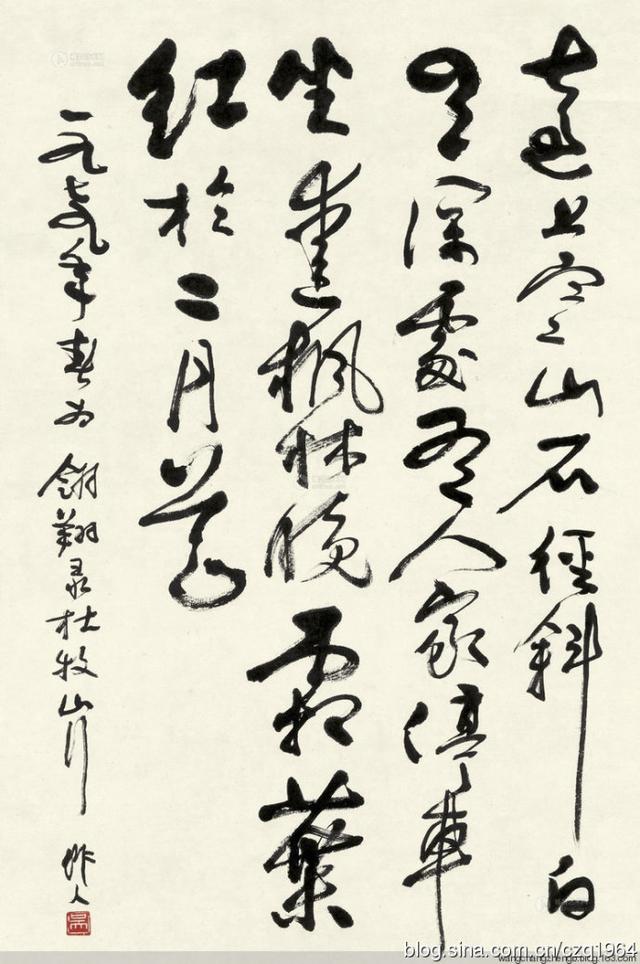 遠上寒山石徑斜白
雲深處有人家停車
坐愛楓林晚霜葉
紅於二月花
一九七九年春为翔录杜牧山行 作人
blog.sina.com.cn/czq1964
wangchangzhengb.blog.163.com